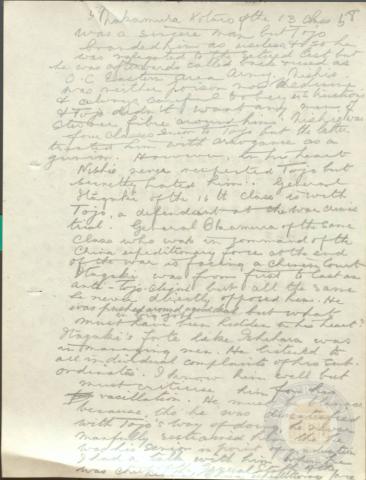 58 58
Nakamura Kotaro of the 13 class
was a sincere man but Tojo
branded him as useless & so he
was relegated to the retired list but
he was afterwards called back & used as
O.C. Eastern area Army. Nishio
was neither poison nor medicine
& Tojo didn't want any men of
sterner fibre around him. Nishio was
four classes senior to Tojo but the latter
treated him with arrogance as a
junior. However, in his heart
Nishio never respected Tojo but
secretly hated him. General
Itagaki of the 16th class is with
Tojo, a defendant at the war crimes
trial. General Okamura of the same
class who was in command of the
China expeditionary force at the end
of the war is facing a Chinese Court.
Itagaki was from first to last an
anti-Tojo but all the same
he never directly opposed him. He
was pushed around but what
must have been hidden in his heart?
Itagaki's forte like Ishihara was
in managing men. He listened to
all individual complaints of his sub-
ordinates. I know him well but
must criticise him for his
vacillation. He must
because, tho he was disgusted
with Tojo's way of doing, he never
manfully restrained him tho he
was his senior in point of graduation
I had a talk with him when he
was Chief of the Expeditionary force